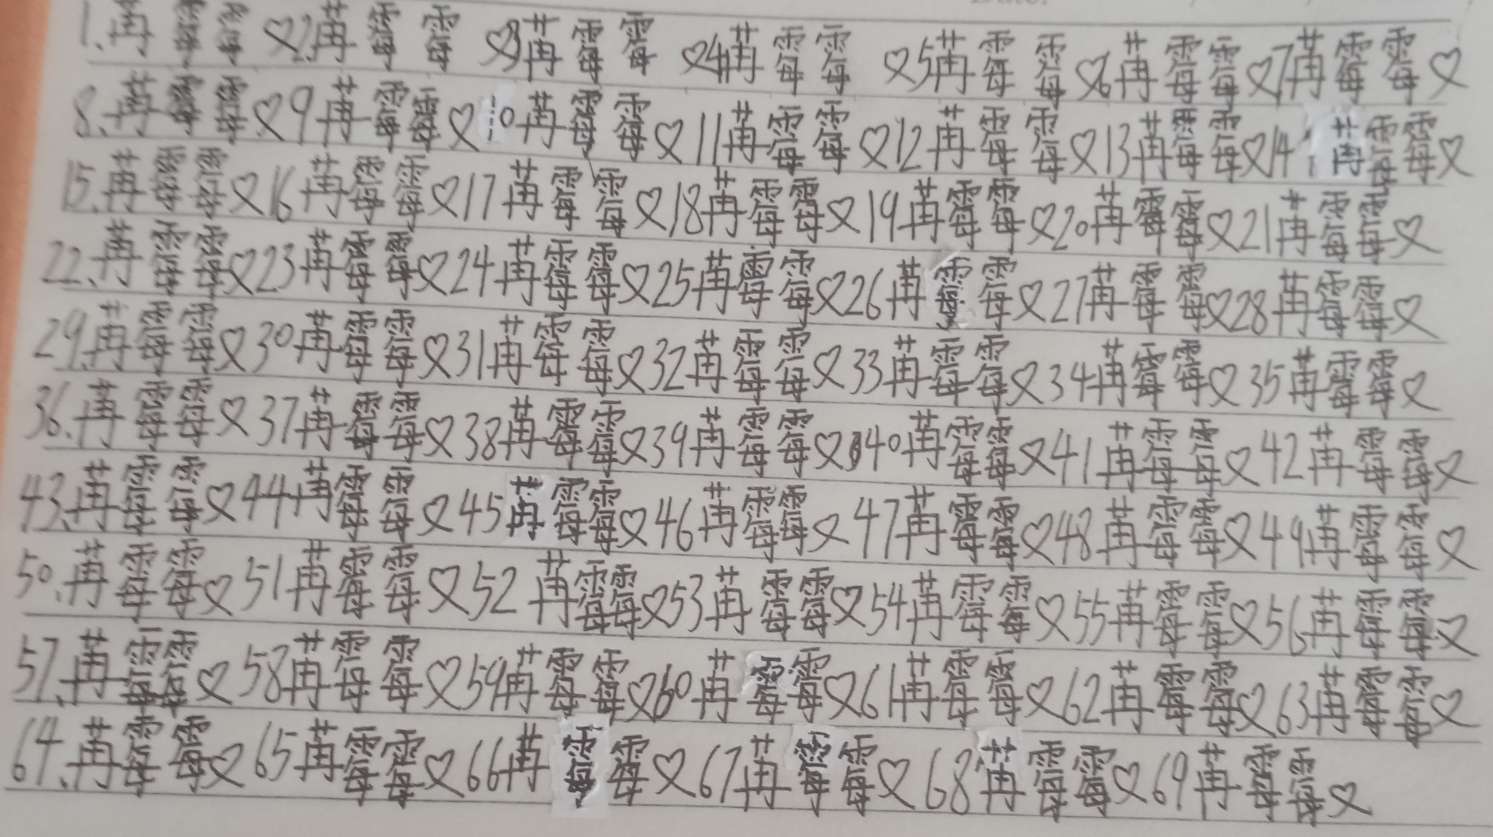 1.苒霉霉♡2苒霉霉♡3苒霉霉♡4苒霉霉♡5苒霉霉♡6苒霉霉♡7苒霉霉♡
8.苒霉霉♡9苒霉霉♡10苒霉霉♡11苒霉霉♡12苒霉霉♡13苒霉霉♡14苒霉霉♡
15.苒霉霉♡16苒霉霉♡17苒霉霉♡18苒霉霉♡19苒霉霉♡20苒霉霉♡21苒霉霉♡
22.苒霉霉♡23苒霉霉♡24苒霉霉♡25苒霉霉♡26苒霉霉♡27苒霉霉♡28苒霉霉♡
29.苒霉霉♡30苒霉霉♡31苒霉霉♡32苒霉霉♡33苒霉霉♡34苒霉霉♡35苒霉霉♡
36.苒霉霉♡37苒霉霉♡38苒霉霉♡39苒霉霉♡40苒霉霉♡41苒霉霉♡42苒霉霉♡
43.苒霉霉♡44苒霉霉♡45苒霉霉♡46苒霉霉♡47苒霉霉♡48苒霉霉♡49苒霉霉♡
50.苒霉霉♡51苒霉霉♡52苒霉霉♡53苒霉霉♡54苒霉霉♡55苒霉霉♡56苒霉霉♡
57.苒霉霉♡58苒霉霉♡59苒霉霉♡60苒霉霉♡61苒霉霉♡62苒霉霉♡63苒霉霉♡
64.苒霉霉♡65苒霉霉♡66苒霉霉♡67苒霉霉♡68苒霉霉♡69苒霉霉♡